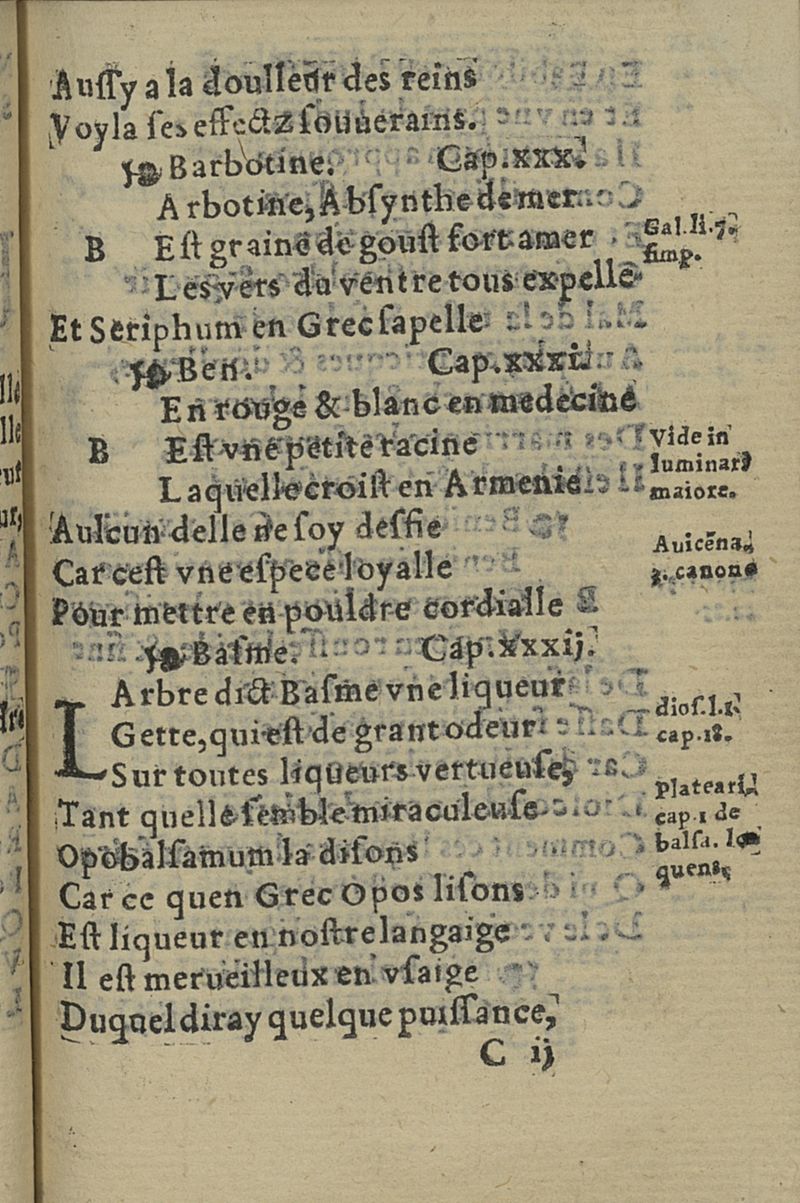 Auſſy a la doulleur des reins
Voyla ſes effectz ſouuerains.
Barbotine. Cap.xxx.
Arbotine, Abſynthe de mer
B Eſt graine de gouſt fort amer
Gal.li.7.
ſimp.
Les vers du ventre tous expelle
Et Seriphum en Grec ſapelle
Ben. Cap.xxxi.
En rouge & blanc en medecine
B Eſt vne petite racine
Vide in
luminari
maiore.
Laquelle croiſt en Armenie
Aulcun delle ne ſoy deffie
Car ceſt vne eſpece loyalle
Auicēna.
canone
Pour mettre en pouldre cordialle
Baſme. Cap.xxxij.
L Arbre dict Baſme vne liqueur
Gette, qui eſt de grant odeur
dioſ.l.1.
cap.18.
Sur toutes liqueurs vertueuſe,
Tant quelle ſemble miraculeuſe
Platearii
cap.1 de
balſa.
quens
Opobalſamum la diſons
Car ce quen Grec Opos liſons
Eſt liqueur en noſtre langaige
Il eſt merueilleux en vſaige
Duquel diray quelque puiſſance,
C ij